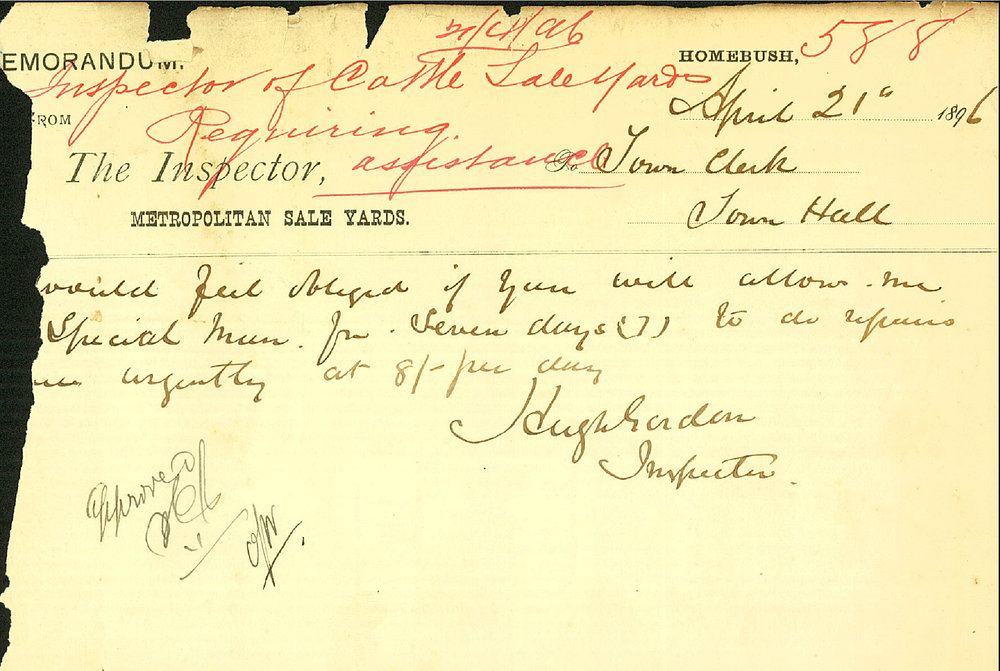 21/4/96
HOMEBUSH, 588
EMORANDUM.
Inspector of Cattle Sale Yards
April 21" 1896
FROM
Requiring
assistance
The Inspector,
To Town Clerk
METROPOLITAN SALE YARDS.
Town Hall
would feel obliged if you will allow me
Special Man for Seven days (7) to do repairs
urgently at 8/- per day
Hugh Gordon
Inspector
Approved